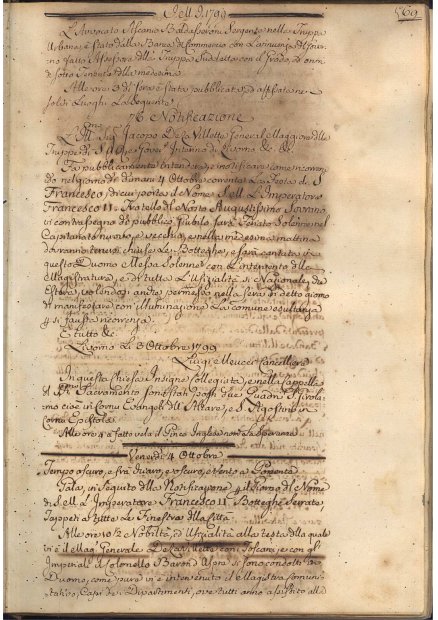 569
Dell' A. 1799
L'Avvocato Ascanio Baldasseroni Sergente nelle Truppe
Urbane, è stato dalla Banca di Commercio con l'annuenza del Governo
fatto Assessore della Truppa Sudetta con il Grado, ed onori
di sotto Tenente della medesima
Alle ore 3 di sera è stata pubblicata, ed affissata ne
soliti Luoghi la seguente
Notificazione
L' Sig. Jacopo De la Villette General Maggiore delle
Truppe di S. Gov. Interino di Livorno &c. &c.
Fa pubblicamente intendere, e notificare come incorrendo
nel giorno di dimani 4 Ottobre corrente la Festa di S.
Francesco, di cui porta il Nome S. M. L'Imperatore
Francesco II. Fratello del Nostro Augustissimo Sovrano
in contrassegno di pubblico Giubilo sarà Feriato Solenne nel
Capitanato nuovo, e vecchio, e nella medesima mattina
dovranno tenersi chiuse le Botteghe, e sarà cantata in
questo Duomo Messa Solenne con l'intervento della
Magistratura, e di tutta l'Ufizialità sì Nazionale, che
Estera, volendo, andar permesso nella sera in detto giorno
di manifestare con illuminazione la comune esultanza
per sì fausta ricorrenza
E tutto &c.
Livorno li 3 Ottobre 1799
Luigi Meucci Cancelliere
In questa Chiesa Insigne Collegiata, e nella Cappella
del SS. Sacramento sono stati posti due Quadri S. Girolamo
cioè in Cornu Evangeli dell'Altare, e S. Agostino in
Cornu Epistola
Alle ore 4 è fatto vela il Pinco Inglese nom. La Speranza
Venerdì 4 Ottobre
Tempo oscuro, e frà chiaro, e oscuro, e vento a Ponente
Gala, in seguito della Notificazione per il giorno del Nome
di S. M. L'Imperatore Francesco II. Botteghe Serrate
Tappeti a tutte le Finestre della Città
Alle ore 10 1/2 Nobiltà, ed Ufizialità alla testa della quale
vi è il Mag. Generale De la Villette con i Toscani, e con gl'
Imperiali il Colonello Baron d'Aspre si sono condotti al
Duomo, come pure vi è intervenuto il Magistrato Comunitativo,
Capi dei Dipartimenti, ove tutti anno assistito alla